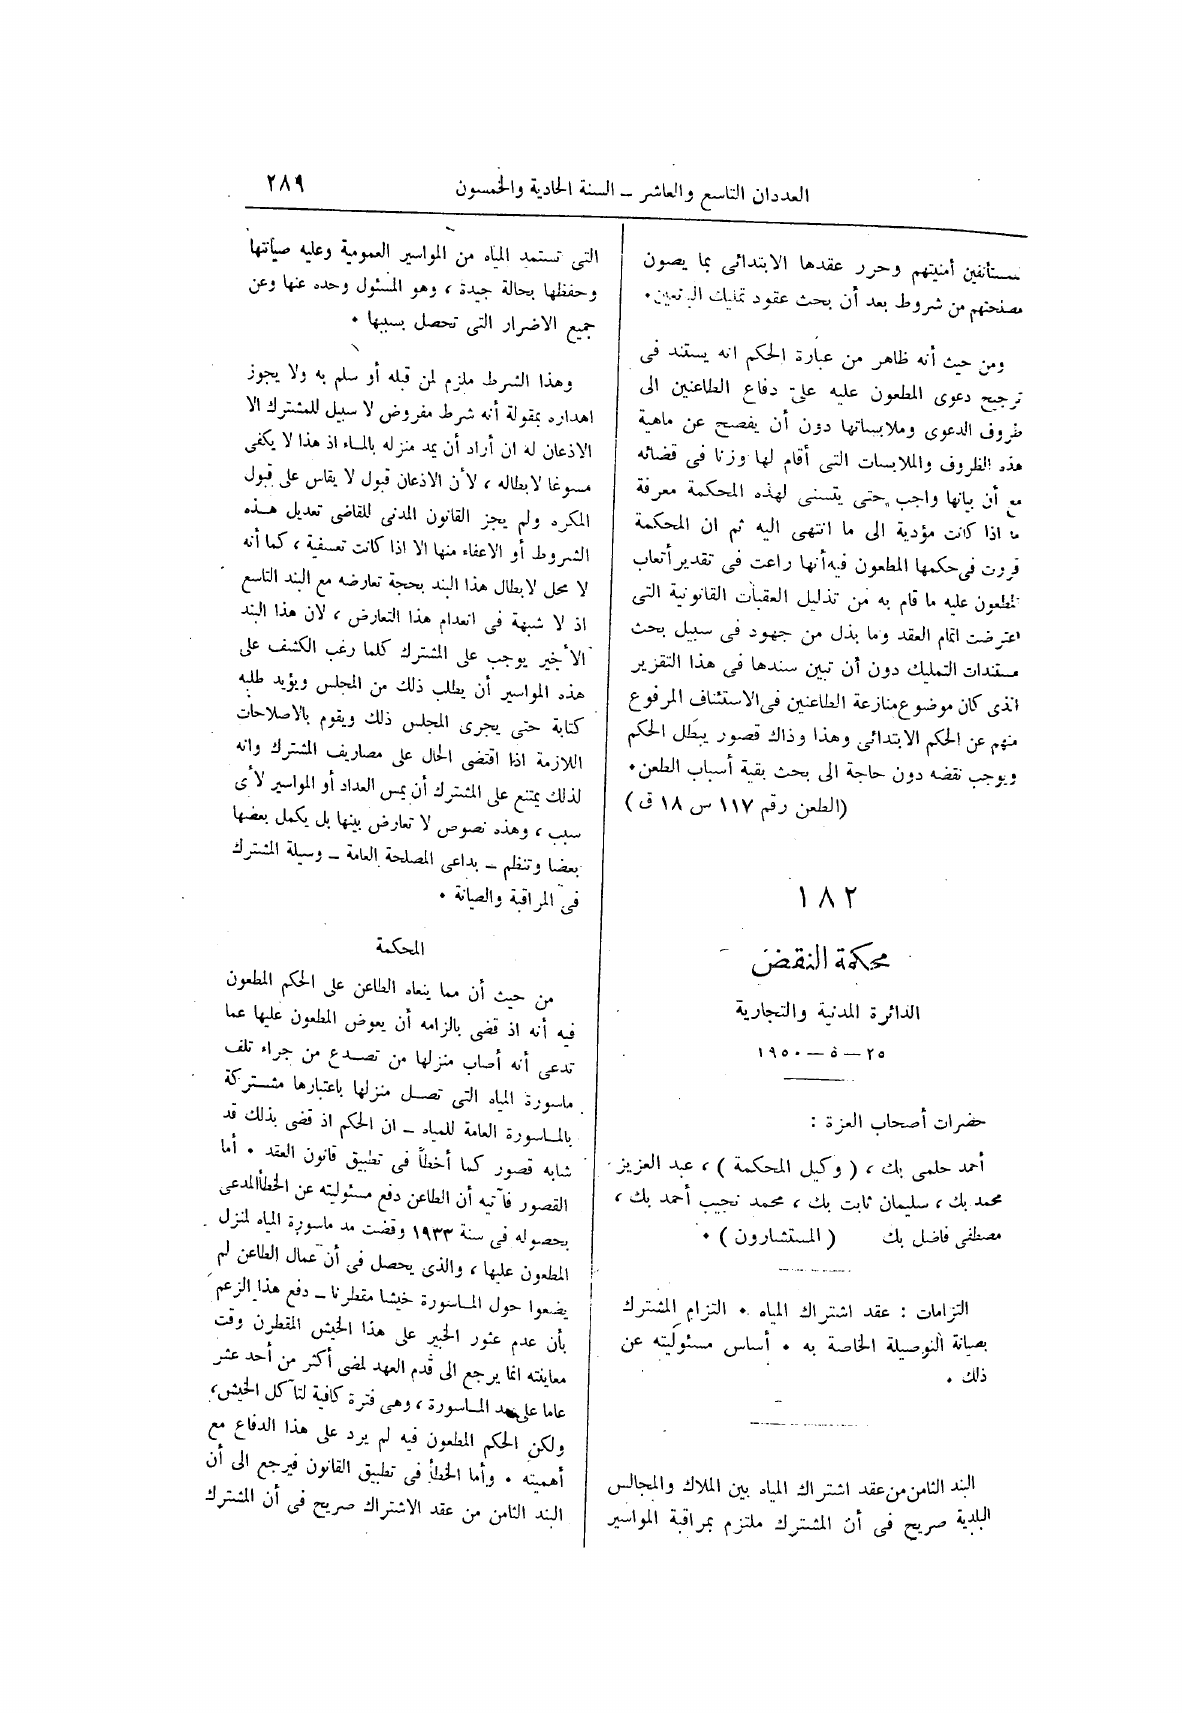 العددان التاسع والعاشر – السنة الحادية والخمسون
٢٨٩
مستأنفين أمنيتهم وحرر عقدها الابتدائى بما يصون
مصلحتهم من شروط بعد أن بحث عقود تمليك البائعين.
ومن حيث أنه ظاهر من عبارة الحكم انه يستند فى
ترجيح دعوى المطعون عليه على دفاع الطاعنين الى
ظروف الدعوى وملابساتها دون أن يفصح عن ماهية
هذه الظروف والملابسات التى أقام لها وزنا فى قضائه
مع أن بيانها واجب حتى يتسنى لهذه المحكمة معرفة
ما اذا كانت مؤدية الى ما انتهى اليه ثم ان المحكمة
قررت فى حكمها المطعون فيه أنها راعت فى تقدير أتعاب
المطعون عليه ما قام به من تذليل العقبات القانونية التى
اعترضت اتمام العقد وما بذل من جهود فى سبيل بحث
مستندات التمليك دون أن تبين سندها فى هذا التقرير
الذى كان موضوع منازعة الطاعنين فى الاستئناف المرفوع
منهم عن الحكم الابتدائى وهذا وذاك قصور يبطل الحكم
ويوجب نقضه دون حاجة الى بحث بقية أسباب الطعن.
(الطعن رقم ١١٧ س ١٨ ق)
١٨٢
محكمة النقض
الدائرة المدنية والتجارية
٢٥ – ٥ – ١٩٥٠
حضرات أصحاب العزة :
أحمد حلمى بك ، ( وكيل المحكمة ) ، عبد العزيز
محمد بك ، سليمان ثابت بك ، محمد نجيب أحمد بك ،
مصطفى فاضل بك ( المستشارون ) .
التزامات : عقد اشتراك المياه . التزام المشترك
بصيانة التوصيلة الخاصة به . أساس مسئوليته عن
ذلك .
البند الثامن من عقد اشتراك المياه بين الملاك والمجالس
البلدية صريح فى أن المشترك ملتزم بمراقبة المواسير
التى تستمد المياه من المواسير العمومية وعليه صيانتها
وحفظها بحالة جيدة ، وهو المسئول وحده عنها وعن
جميع الاضرار التى تحصل بسببها .
وهذا الشرط ملزم لمن قبله أو سلم به ولا يجوز
اهداره بمقولة أنه شرط مفروض لا سبيل للمشترك الا
الاذعان له ان أراد أن يمد منزله بالماء اذ هذا لا يكفى
مسوغا لابطاله ، لأن الاذعان قبول لا يقاس على قبول
المكره ولم يجز القانون المدنى للقاضى تعديل هذه
الشروط أو الاعفاء منها الا اذا كانت تعسفية ، كما أنه
لا محل لابطال هذا البند بحجة تعارضه مع البند التاسع
اذ لا شبهة فى انعدام هذا التعارض ، لان هذا البند
الأخير يوجب على المشترك كلما رغب الكشف على
هذه المواسير أن يطلب ذلك من المجلس ويؤيد طلبه
كتابة حتى يجرى المجلس ذلك ويقوم بالاصلاحات
اللازمة اذا اقتضى الحال على مصاريف المشترك وانه
لذلك يمتنع على المشترك أن يمس العداد أو المواسير لأى
سبب ، وهذه نصوص لا تعارض بينها بل يكمل بعضها
بعضا وتنظم – بداعى المصلحة العامة – وسيلة المشترك
فى المراقبة والصيانة .
المحكمة
من حيث أن مما ينعاه الطاعن على الحكم المطعون
فيه أنه اذ قضى بالزامه أن يعوض المطعون عليها عما
تدعى أنه أصاب منزلها من تصدع من جراء تلف
ماسورة المياه التى تصل منزلها باعتبارها مشتركة
بالماسورة العامة للمياه – ان الحكم اذ قضى بذلك قد
شابه قصور كما أخطأ فى تطبيق قانون العقد . أما
القصور فآتيه أن الطاعن دفع مسئوليته عن الخطأ المدعى
بحصوله فى سنة ١٩٣٣ وقت مد ماسورة المياه لمنزل
المطعون عليها ، والذى يحصل فى أن عمال الطاعن لم
يضعوا حول الماسورة خيشا مقطرنا – دفع هذا الزعم
بأن عدم عثور الخبير على هذا الخيش المقطرن وقت
معاينته انما يرجع الى قدم العهد لمضى أكثر من أحد عشر
عاما على مد الماسورة ، وهى فترة كافية لتآكل الخيش،
ولكن الحكم المطعون فيه لم يرد على هذا الدفاع مع
أهميته . وأما الخطأ فى تطبيق القانون فيرجع الى أن
البند الثامن من عقد الاشتراك صريح فى أن المشترك